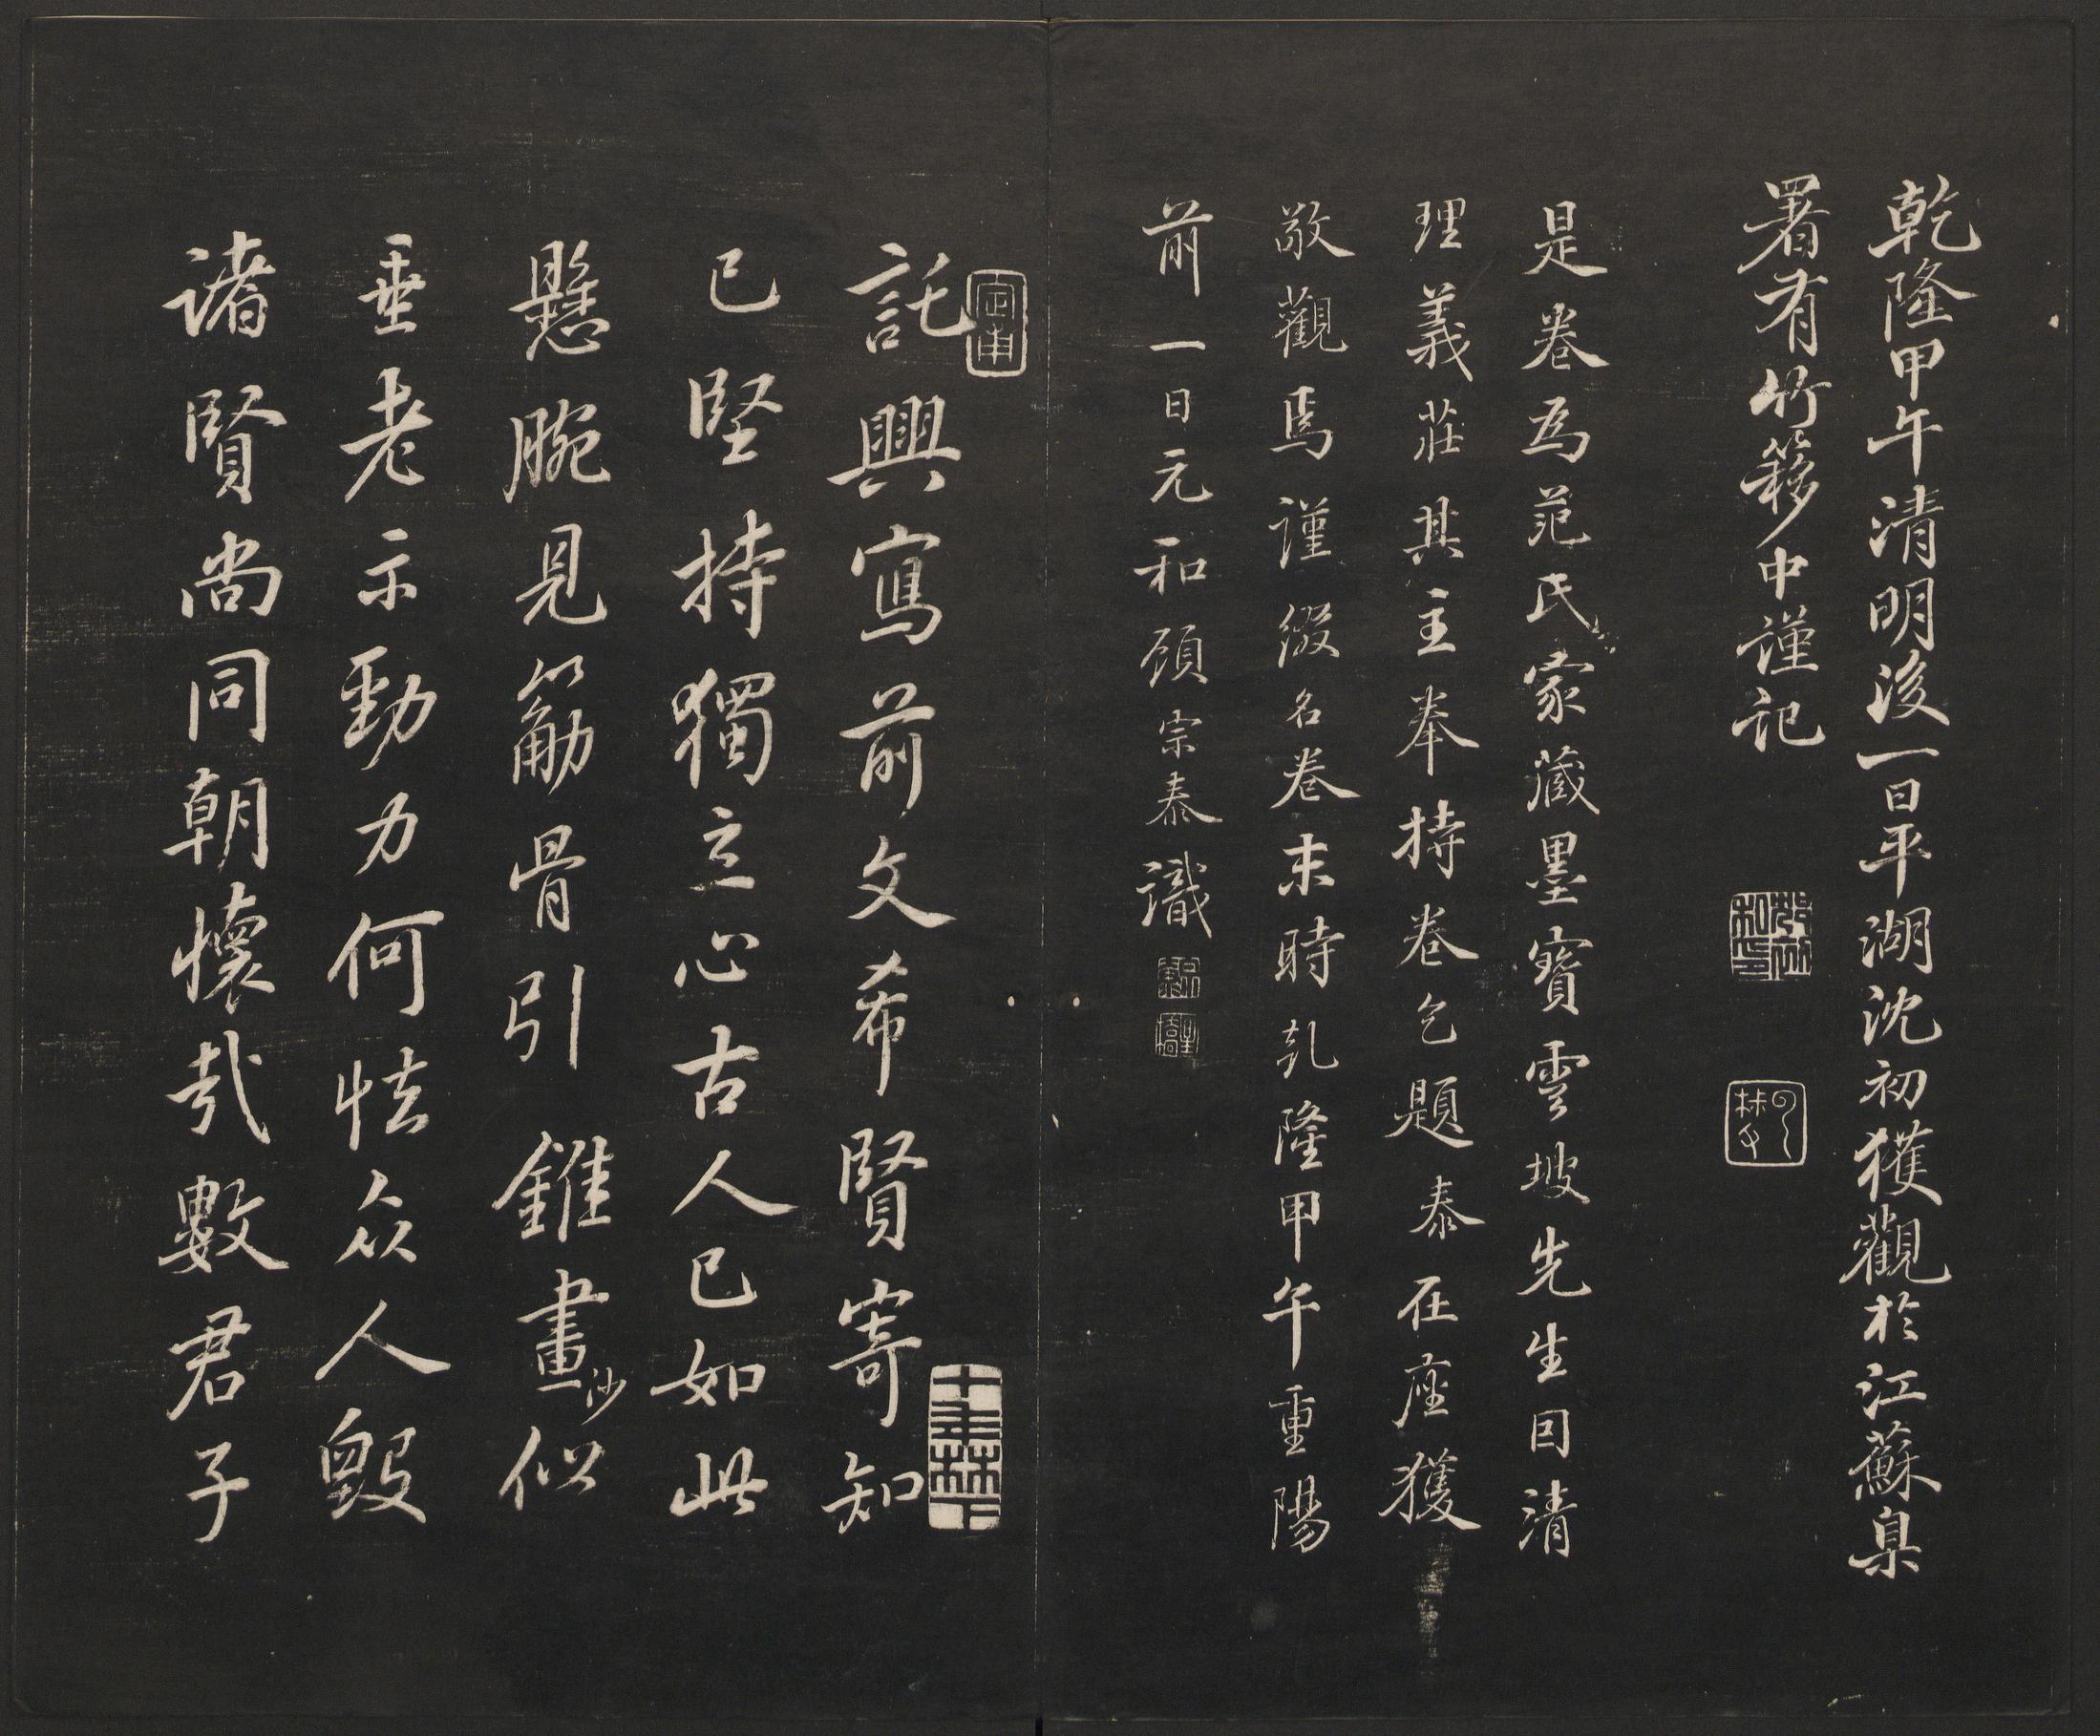 乾隆甲午清明後一日平湖沈初獲觀於江蘇臬
署有竹簃中謹記
是卷為范氏家藏墨寶雲坡先生囙清
理義莊其主奉持卷乞題泰在座獲
敬觀焉謹綴名卷末時乹隆甲午重陽
前一日元和顧宗泰識
託興寫前文希賢寄知
已堅持獨立心古人已如此
懸腕見筋骨引錐畫沙似
垂老示勁力何怯众人毀
諸賢尚同朝懷哉數君子